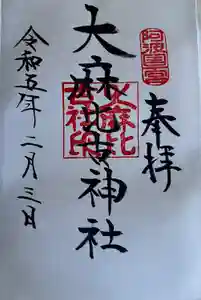 奉拝
阿波國一宮
大麻比古神社
大麻比
古神社
印
令和五年二月三日